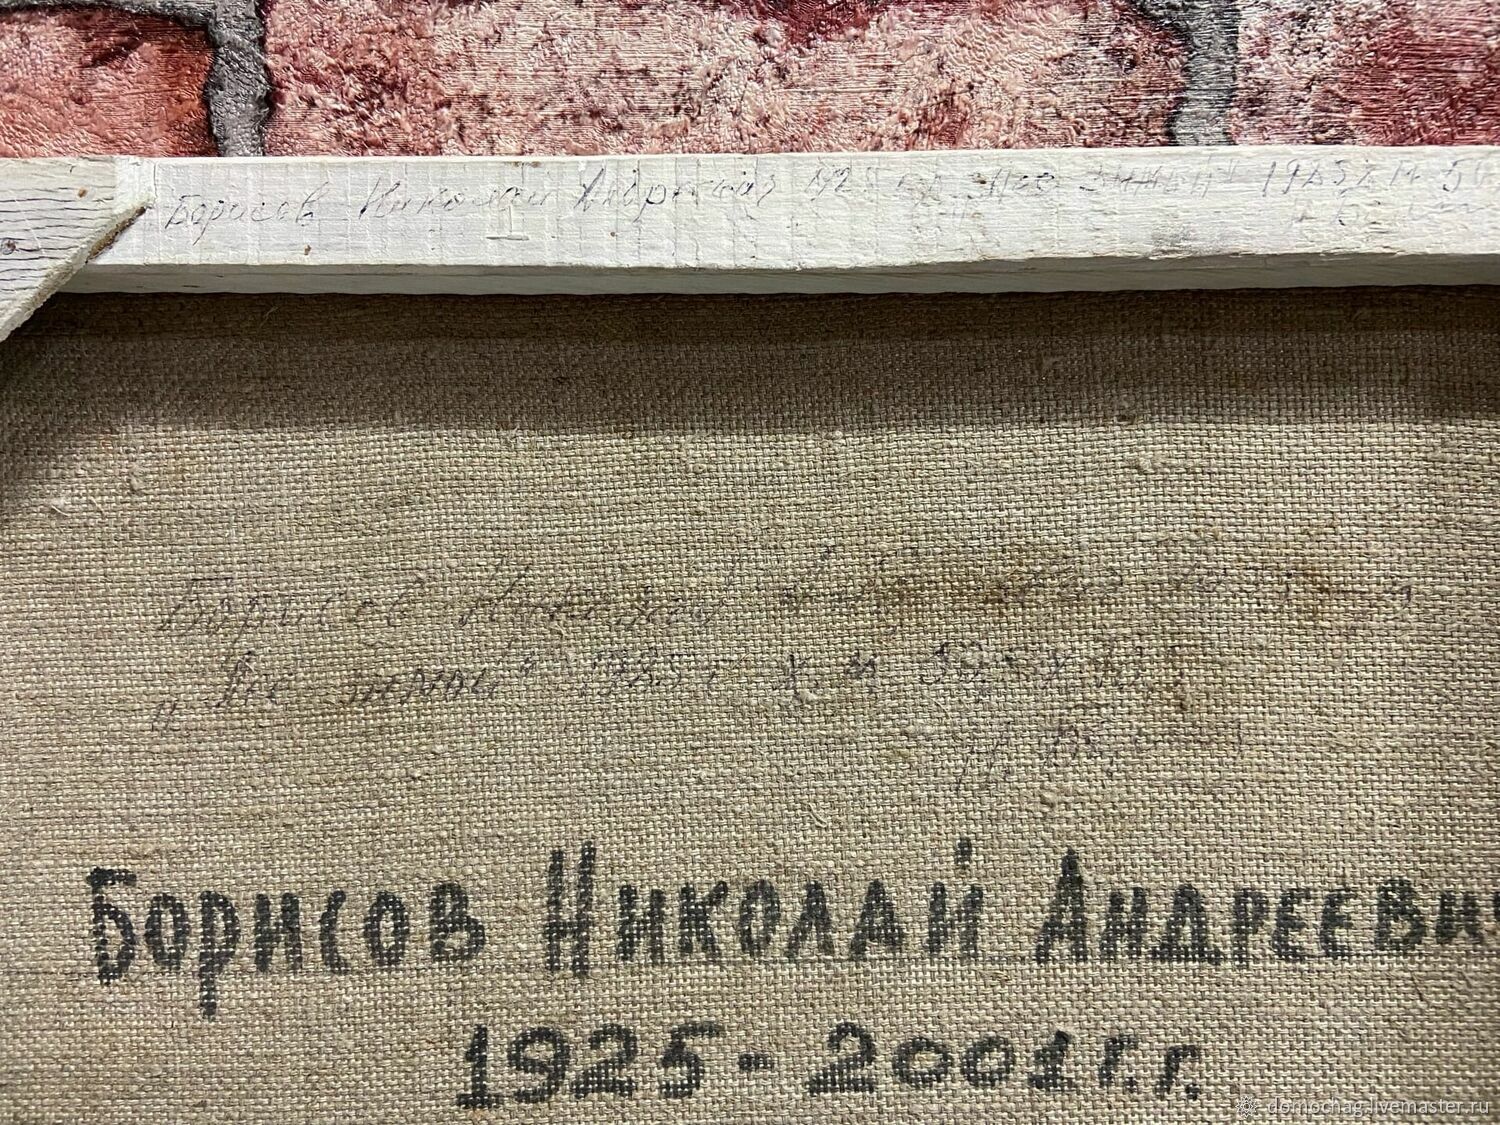 Борисов Николай Андреевич 1925 г.р. "Лес зимой" 1985 х м 50
Борисов Николай
"Лес зимой" 1985 г х м 50 х
Борисов Николай Андреевич
1925-2001г.г.
domochag.livemaster.ru